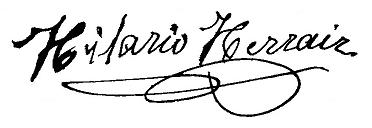 Hilario Herraiz